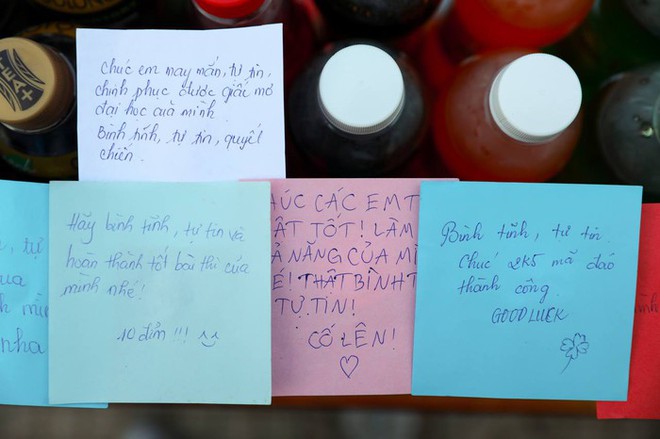 Chúc em may mắn, tự tin,
chinh phục được giấc mơ
đại học của mình
Bình tĩnh, tự tin, quyết
chiến.
Hãy bình tĩnh, tự tin và
hoàn thành tốt bài thi của
mình nhé!
10 điểm!!!
ÚC CÁC EM T
ẬT TỐT! LÀM
Ả NĂNG CỦA MÌ
É! THẬT BÌNH T
TỰ TIN!
CỐ LÊN!
Bình tĩnh, tự tin.
Chúc 2K5 mã đáo
thành công
GOODLUCK
tự
mìn
nha